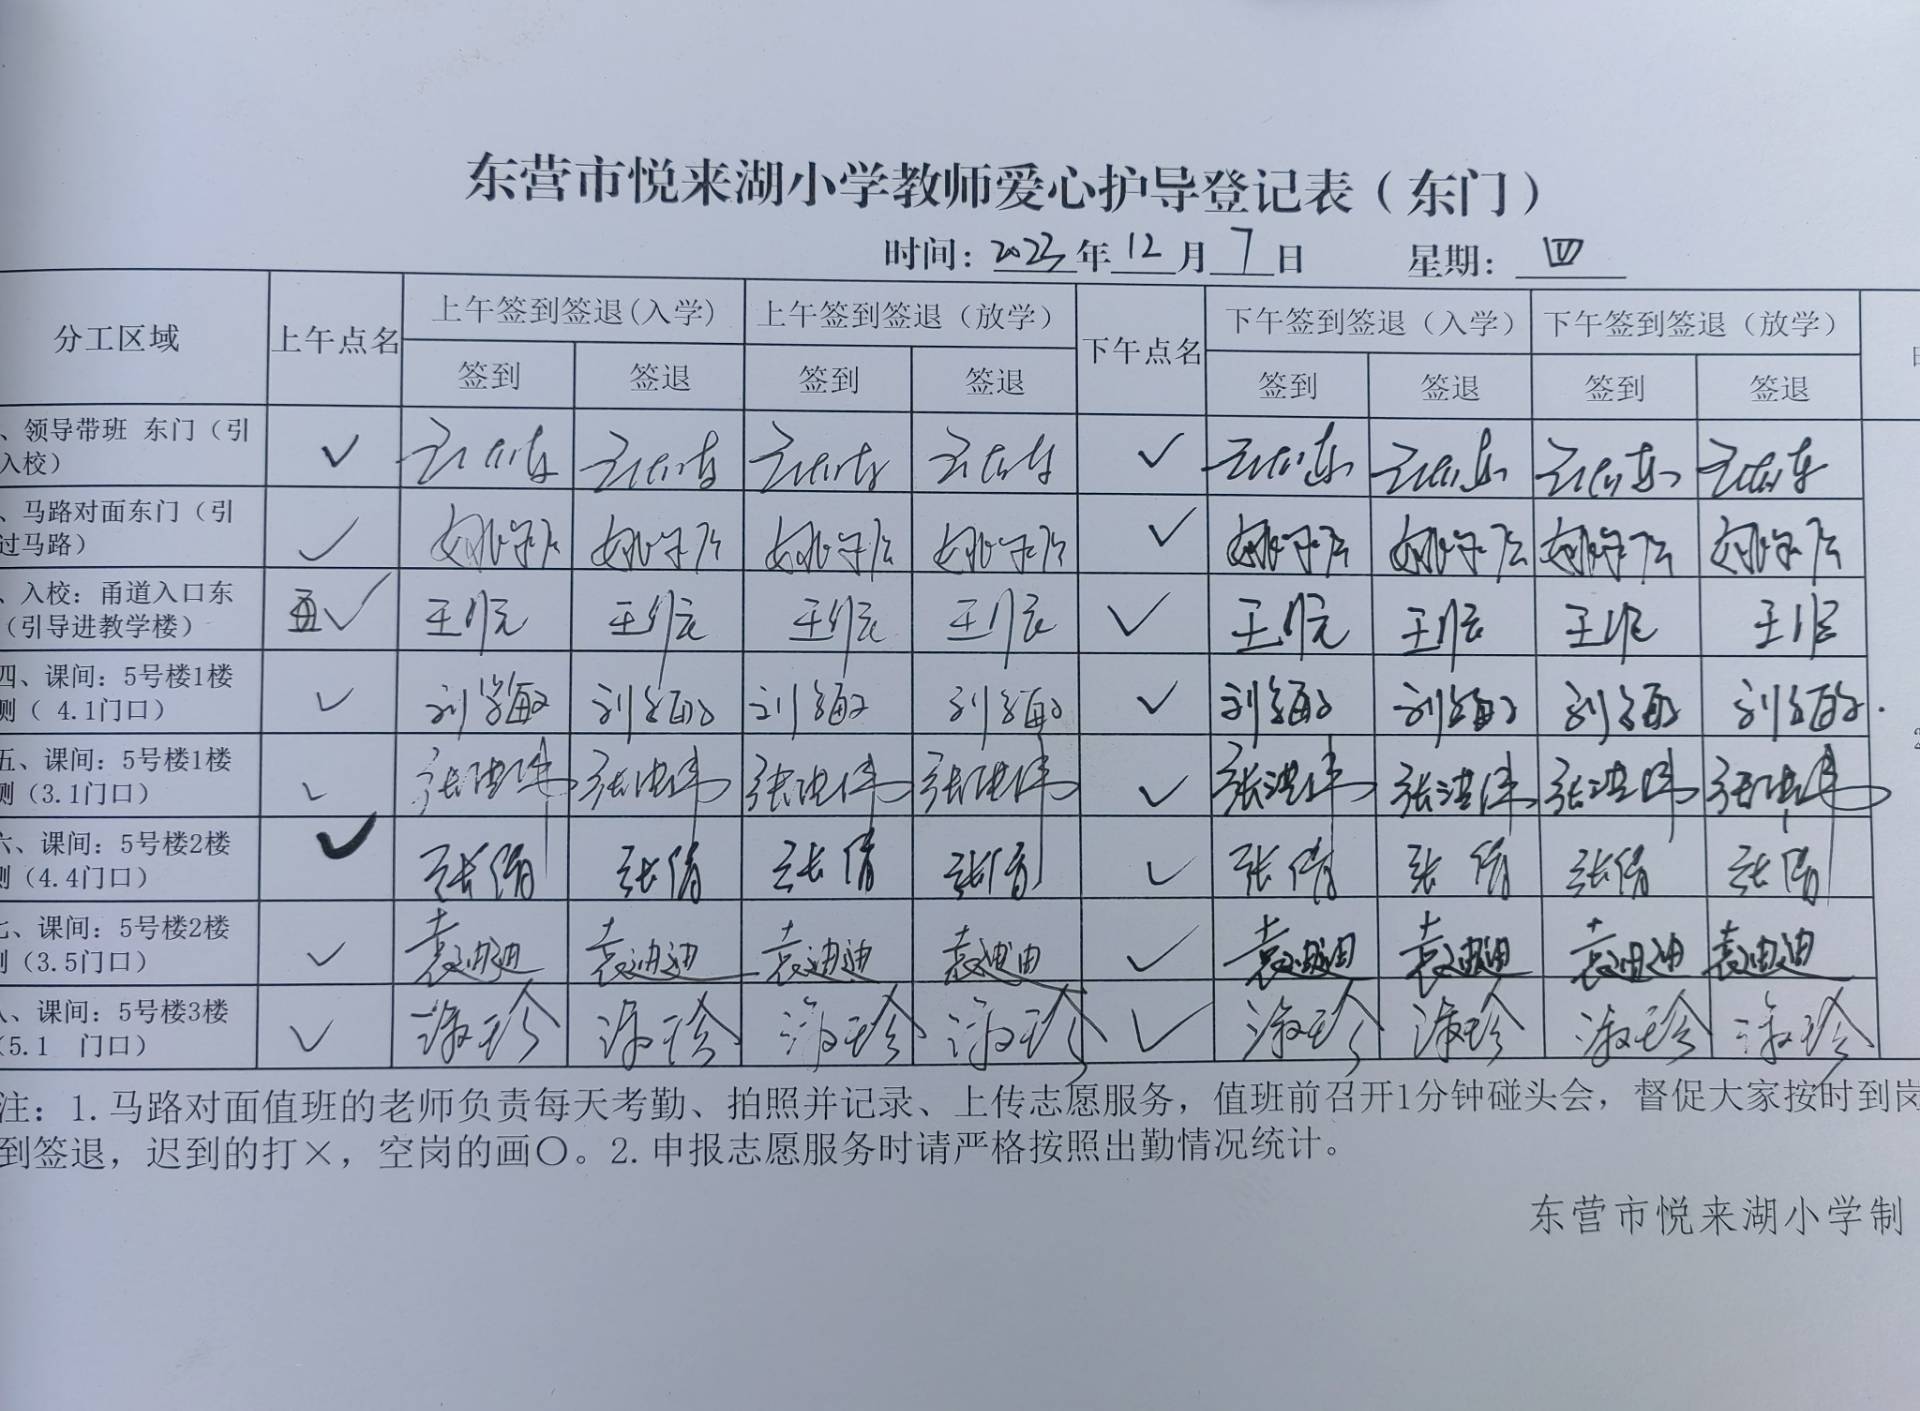 东营市悦来湖小学教师爱心护导登记表（东门）
时间：2023年12月7日 星期：四
分工区域 上午点名 上午签到签退(入学) 上午签到签退（放学） 下午点名 下午签到签退（入学） 下午签到签退（放学）
签到 签退 签到 签退 签到 签退 签到 签退
、领导带班 东门（引
入校） ✓ ✓
、马路对面东门（引
过马路） ✓ ✓
、入校：甬道入口东
（引导进教学楼） ✓ 王 王 王 王 ✓ 王 王 王 王
四、课间：5号楼1楼
侧（ 4.1门口） ✓ 刘 刘 刘 刘 ✓ 刘 刘 刘 刘
五、课间：5号楼1楼
侧（3.1门口） ✓ 张洪伟 张洪伟 张洪伟 张洪伟 ✓ 张洪伟 张洪伟 张洪伟 张洪伟
六、课间：5号楼2楼
侧（4.4门口） ✓ 张倩 张倩 张倩 张倩 ✓ 张倩 张倩 张倩 张倩
七、课间：5号楼2楼
侧（3.5门口） ✓ 袁迪迪 袁迪迪 袁迪迪 袁迪迪 ✓ 袁迪迪 袁迪迪 袁迪迪 袁迪迪
、课间：5号楼3楼
（5.1 门口） ✓ 淑珍 淑珍 淑珍 淑珍 ✓ 淑珍 淑珍 淑珍 淑珍
注：1.马路对面值班的老师负责每天考勤、拍照并记录、上传志愿服务，值班前召开1分钟碰头会，督促大家按时到岗
到签退，迟到的打×，空岗的画○。2.申报志愿服务时请严格按照出勤情况统计。
东营市悦来湖小学制